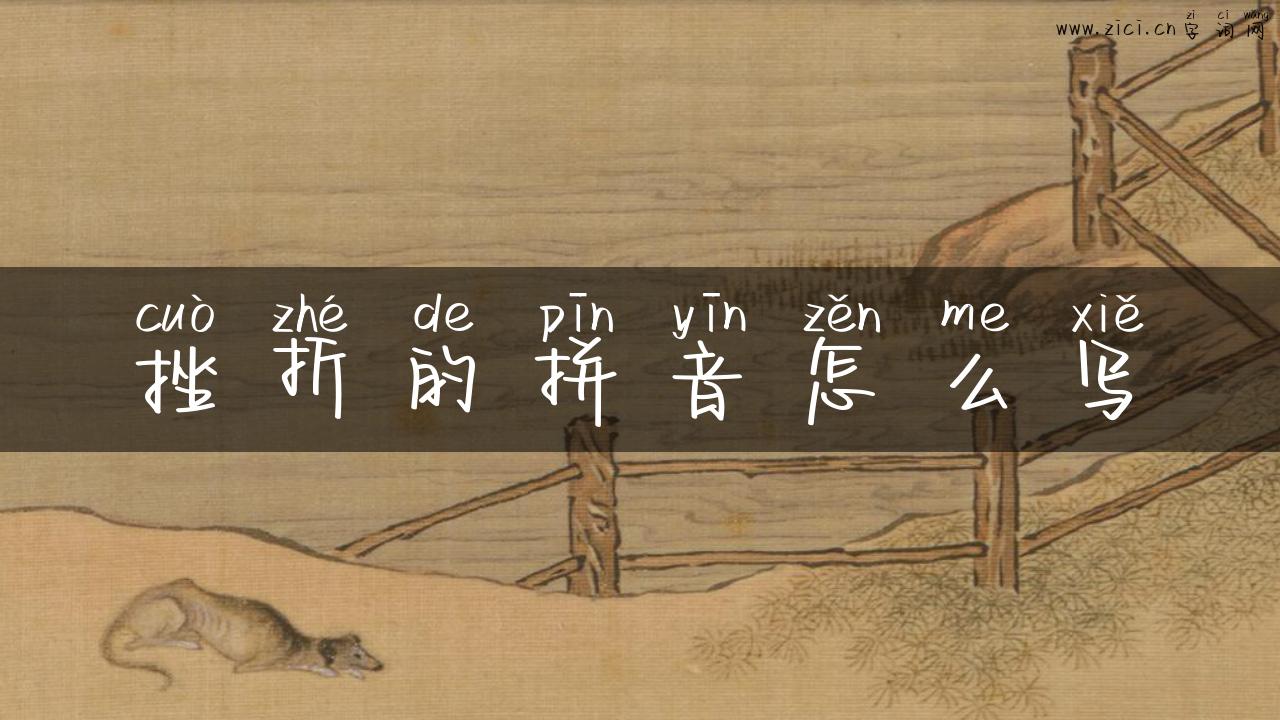 zi ci wang
www.zici.cn 字词网
cuò zhé de pīn yīn zěn me xiě
挫折的拼音怎么写